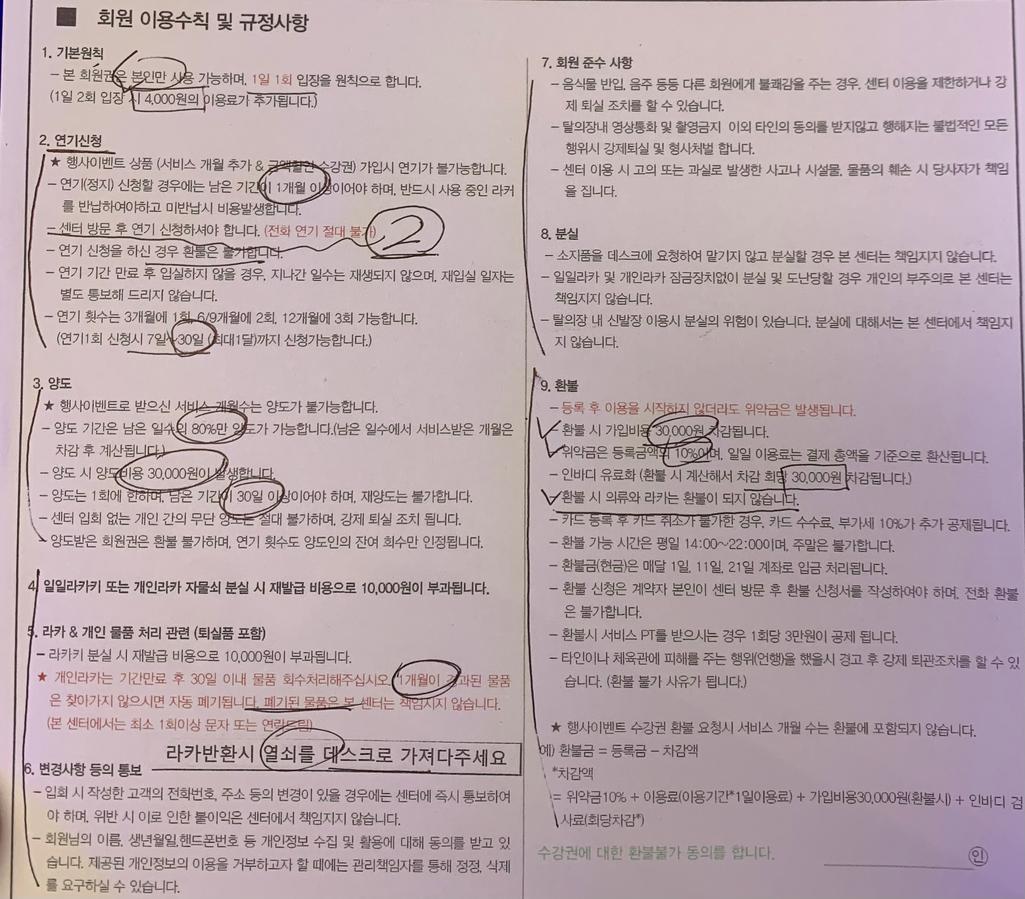 ■ 회원 이용수칙 및 규정사항
1. 기본원칙
– 본 회원권은 본인만 사용 가능하며, 1일 1회 입장을 원칙으로 합니다.
(1일 2회 입장 시 4,000원의 이용료가 추가됩니다.)
2. 연기신청
★ 행사이벤트 상품 (서비스 개월 추가 & 금액할인 수강권) 가입시 연기가 불가능합니다.
– 연기(정지) 신청할 경우에는 남은 기간이 1개월 이상이어야 하며, 반드시 사용 중인 라커
를 반납하여야하고 미반납시 비용발생합니다.
– 센터 방문 후 연기 신청하셔야 합니다. (전화 연기 절대 불가)
②
– 연기 신청을 하신 경우 환불은 불가합니다.
– 연기 기간 만료 후 입실하지 않을 경우, 지나간 일수는 재생되지 않으며, 재입실 일자는
별도 통보해 드리지 않습니다.
– 연기 횟수는 3개월에 1회, 6/9개월에 2회, 12개월에 3회 가능합니다.
(연기1회 신청시 7일~30일 (최대1달)까지 신청가능합니다.)
3. 양도
★ 행사이벤트로 받으신 서비스 개월수는 양도가 불가능합니다.
– 양도 기간은 남은 일수의 80%만 양도가 가능합니다.(남은 일수에서 서비스받은 개월은
차감 후 계산됩니다.)
– 양도 시 양도비용 30,000원이 발생합니다.
– 양도는 1회에 한하며, 남은 기간이 30일 이상이어야 하며, 재양도는 불가합니다.
– 센터 입회 없는 개인 간의 무단 양도는 절대 불가하며, 강제 퇴실 조치 됩니다.
– 양도받은 회원권은 환불 불가하며, 연기 횟수도 양도인의 잔여 회수만 인정됩니다.
4. 일일라카키 또는 개인라카 자물쇠 분실 시 재발급 비용으로 10,000원이 부과됩니다.
5. 라카 & 개인 물품 처리 관련 (퇴실품 포함)
– 라카키 분실 시 재발급 비용으로 10,000원이 부과됩니다.
★ 개인라카는 기간만료 후 30일 이내 물품 회수처리해주십시오. 1개월이 경과된 물품
은 찾아가지 않으시면 자동 폐기됩니다. 폐기된 물품은 본 센터는 책임지지 않습니다.
(본 센터에서는 최소 1회이상 문자 또는 연락드림)
라카반환시 열쇠를 데스크로 가져다주세요
6. 변경사항 등의 통보
– 입회 시 작성한 고객의 전화번호, 주소 등의 변경이 있을 경우에는 센터에 즉시 통보하여
야 하며, 위반 시 이로 인한 불이익은 센터에서 책임지지 않습니다.
– 회원님의 이름, 생년월일,핸드폰번호 등 개인정보 수집 및 활용에 대해 동의를 받고 있
습니다. 제공된 개인정보의 이용을 거부하고자 할 때에는 관리책임자를 통해 정정, 삭제
를 요구하실 수 있습니다.
7. 회원 준수 사항
– 음식물 반입, 음주 등등 다른 회원에게 불쾌감을 주는 경우, 센터 이용을 제한하거나 강
제 퇴실 조치를 할 수 있습니다.
– 탈의장내 영상통화 및 촬영금지 이외 타인의 동의를 받지않고 행해지는 불법적인 모든
행위시 강제퇴실 및 형사처벌 합니다.
– 센터 이용 시 고의 또는 과실로 발생한 사고나 시설물, 물품의 훼손 시 당사자가 책임
을 집니다.
8. 분실
– 소지품을 데스크에 요청하여 맡기지 않고 분실할 경우 본 센터는 책임지지 않습니다.
– 일일라카 및 개인라카 잠금장치없이 분실 및 도난당할 경우 개인의 부주의로 본 센터는
책임지지 않습니다.
– 탈의장 내 신발장 이용시 분실의 위험이 있습니다. 분실에 대해서는 본 센터에서 책임지
지 않습니다.
9. 환불
– 등록 후 이용을 시작하지 않더라도 위약금은 발생됩니다.
– 환불 시 가입비용 30,000원 차감됩니다.
– 위약금은 등록금액의 10%이며, 일일 이용료는 결제 총액을 기준으로 환산됩니다.
– 인바디 유료화 (환불 시 계산해서 차감 회당 30,000원 차감됩니다.)
– 환불 시 의류와 라카는 환불이 되지 않습니다.
– 카드 등록 후 카드 취소가 불가한 경우, 카드 수수료, 부가세 10%가 추가 공제됩니다.
– 환불 가능 시간은 평일 14:00~22:00이며, 주말은 불가합니다.
– 환불금(현금)은 매달 1일, 11일, 21일 계좌로 입금 처리됩니다.
– 환불 신청은 계약자 본인이 센터 방문 후 환불 신청서를 작성하여야 하며, 전화 환불
은 불가합니다.
– 환불시 서비스 PT를 받으시는 경우 1회당 3만원이 공제 됩니다.
– 타인이나 체육관에 피해를 주는 행위(언행)을 했을시 경고 후 강제 퇴관조치를 할 수 있
습니다. (환불 불가 사유가 됩니다.)
★ 행사이벤트 수강권 환불 요청시 서비스 개월 수는 환불에 포함되지 않습니다.
예) 환불금 = 등록금 – 차감액
*차감액
= 위약금10% + 이용료(이용기간*1일이용료) + 가입비용30,000원(환불시) + 인바디 검
사료(회당차감*)
수강권에 대한 환불불가 동의를 합니다. ㊞